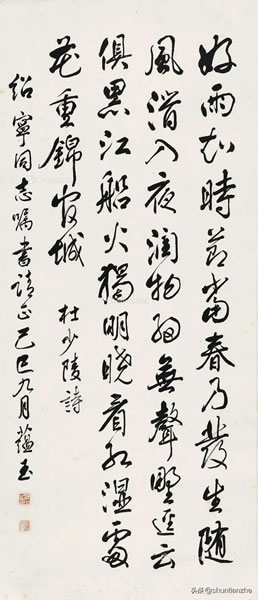 好雨知時節當春乃發生隨
風潛入夜潤物細無聲野逕云
俱黑江船火獨明曉看紅濕處
花重錦官城 杜少陵詩
紹寧同志嘱書請正己巳九月蘊玉
头条@shuntianzhe